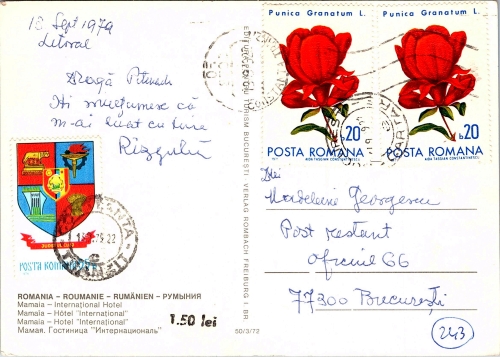 18 Sept 1979
Litoral
Dragă
Iți mulțumesc că
m-ai luat cu tine
EDITURA PENTRU TURISM BUCUREȘTI VERLAG ROMBACH FREIBURG I. BR
Punica Granatum L.
20
POSTA ROMANA
AIDA TASGIAN CONSTANTINESCU
Punica Granatum L.
20
POSTA ROMANA
AIDA TASGIAN CONSTANTINESCU
Madeleine Georgescu
Post restant
oficiul 66
77300 București
243
POSTA
ROMANIA – ROUMANIE – RUMÄNIEN – РУМЫНИЯ
Mamaia – International Hotel
Mamaia – Hôtel "International"
Mamaia – Hotel "International"
Мамая. Гостиница "Интернациональ"
1.50 lei
50/3/72